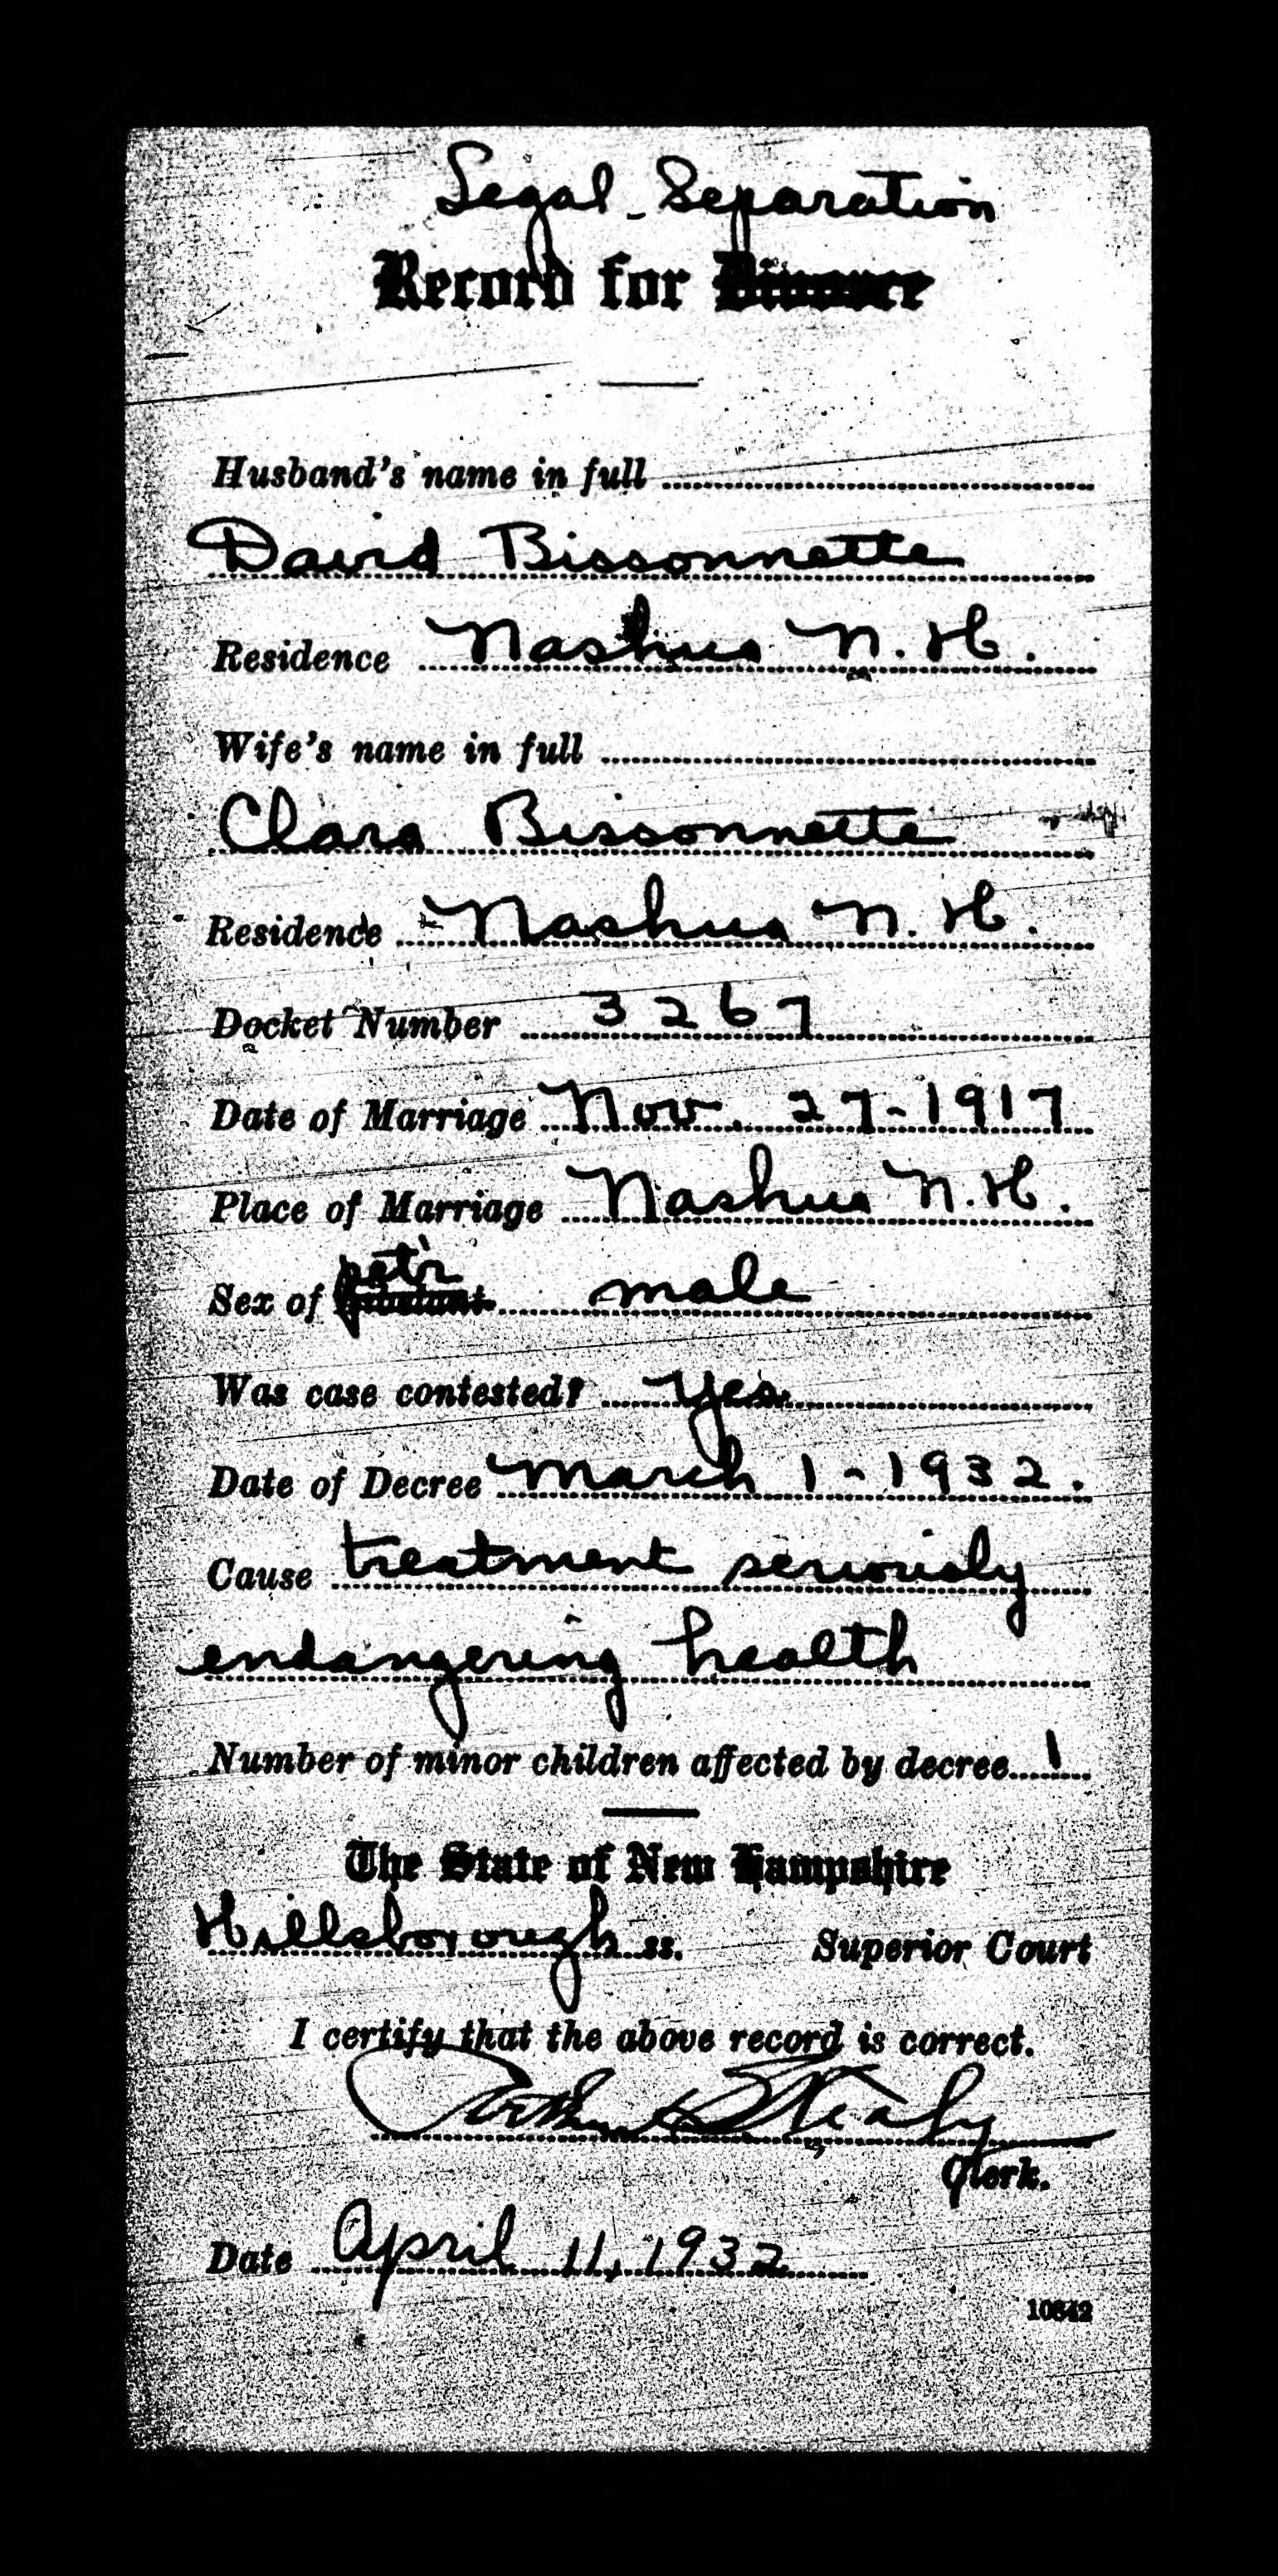 Legal Separation
Record for Divorce
Husband's name in full
David Bissonnette
Residence Nashua N. H.
Wife's name in full
Clara Bissonnette
Residence Nashua N. H.
Docket Number 3267
Date of Marriage Nov. 27-1917
Place of Marriage Nashua N. H.
Sex of pet'r male
Was case contested? yes
Date of Decree March 1-1932.
Cause treatment seriously
endangering health
Number of minor children affected by decree 1
The State of New Hampshire
Hillsborough ss. Superior Court
I certify that the above record is correct.
Arthur S Healy
Clerk.
Date April 11, 1932
10642